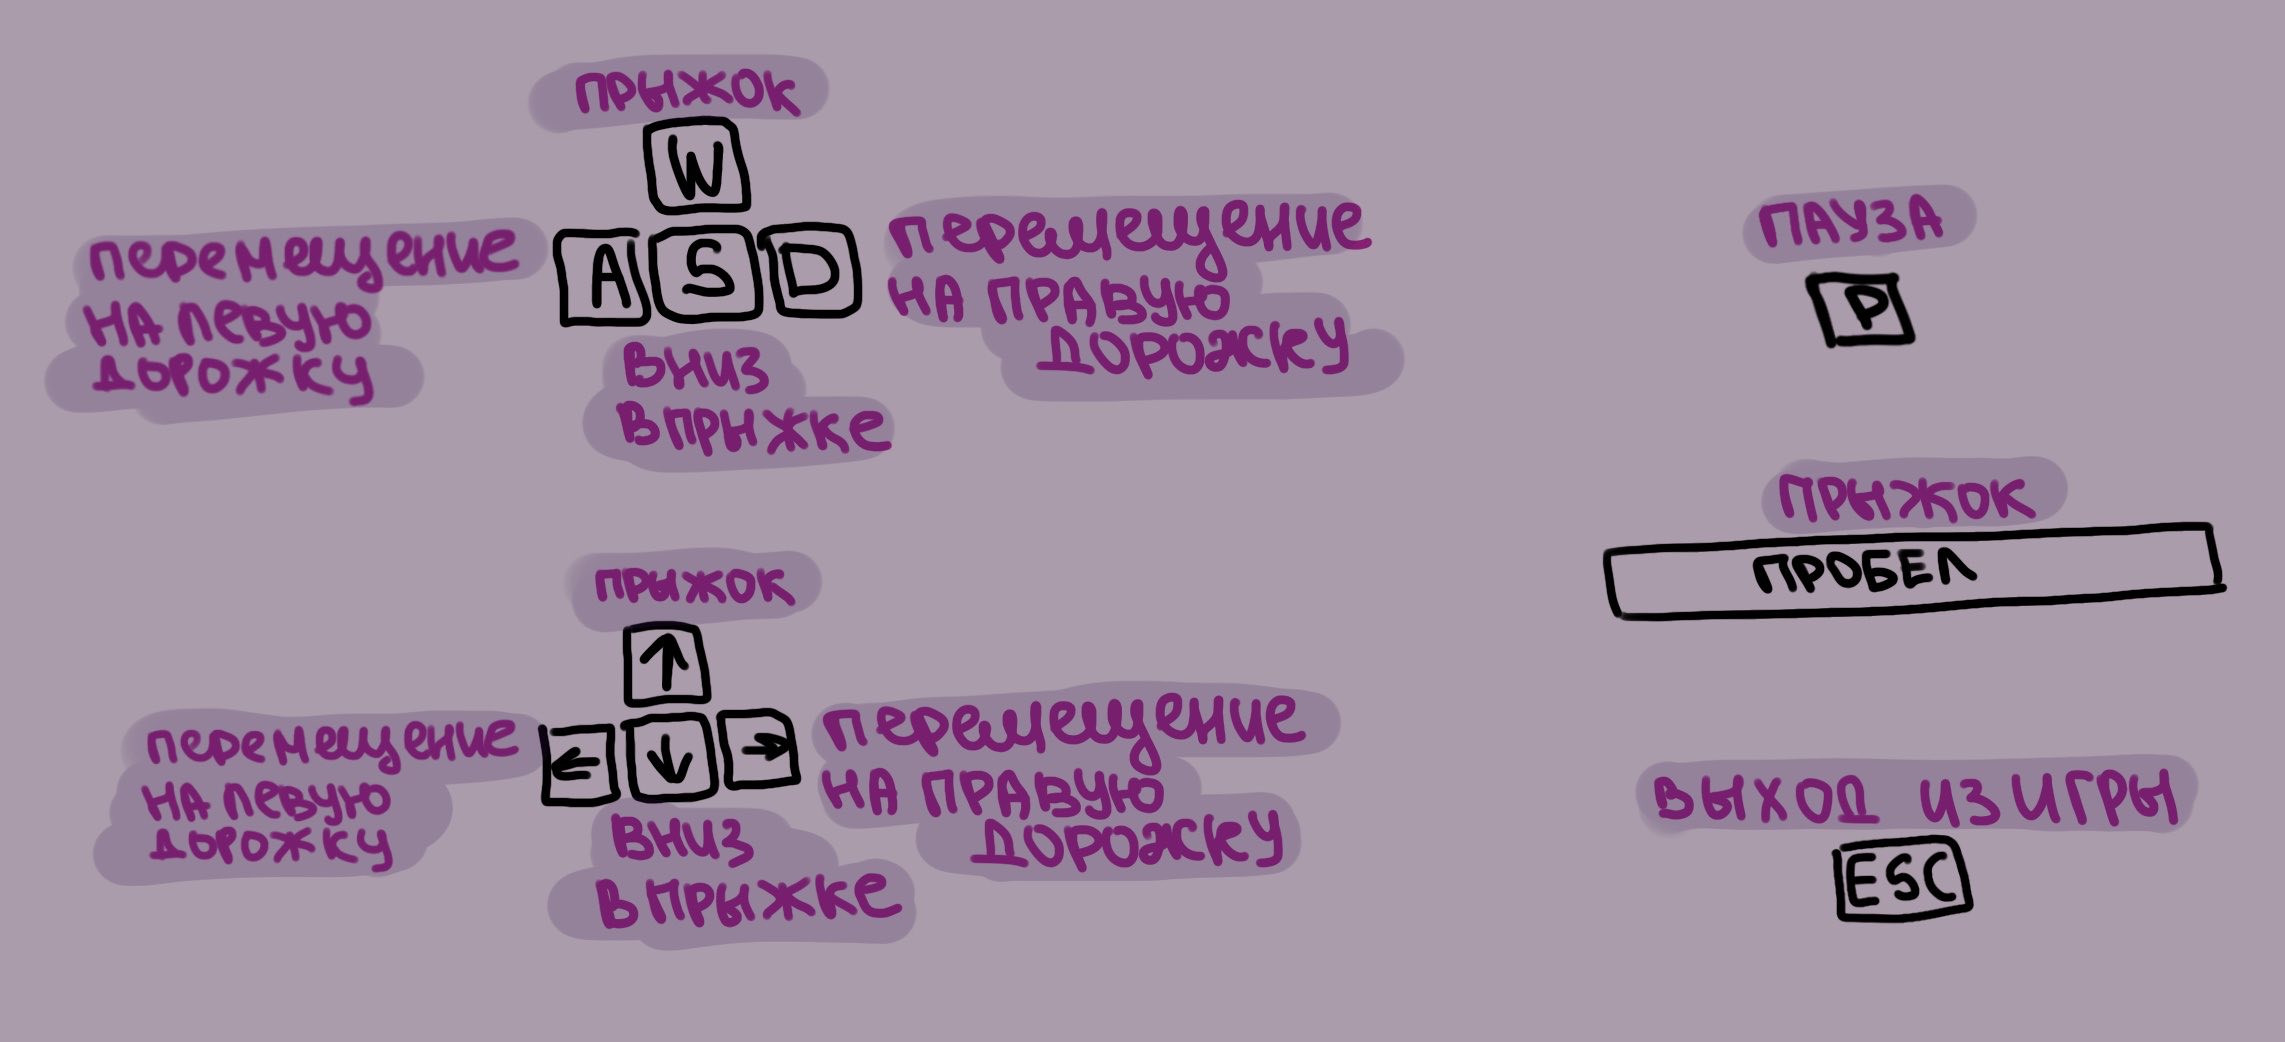 ПРЫЖОК
W
ПЕРЕМЕЩЕНИЕ
НА ЛЕВУЮ
ДОРОЖКУ
A S D
ПЕРЕМЕЩЕНИЕ
НА ПРАВУЮ
ДОРОЖКУ
ВНИЗ
В ПРЫЖКЕ
ПРЫЖОК
↑
ПЕРЕМЕЩЕНИЕ
НА ЛЕВУЮ
ДОРОЖКУ
← ↓ →
ПЕРЕМЕЩЕНИЕ
НА ПРАВУЮ
ДОРОЖКУ
ВНИЗ
В ПРЫЖКЕ
ПАУЗА
P
ПРЫЖОК
ПРОБЕЛ
ВЫХОД ИЗ ИГРЫ
ESC